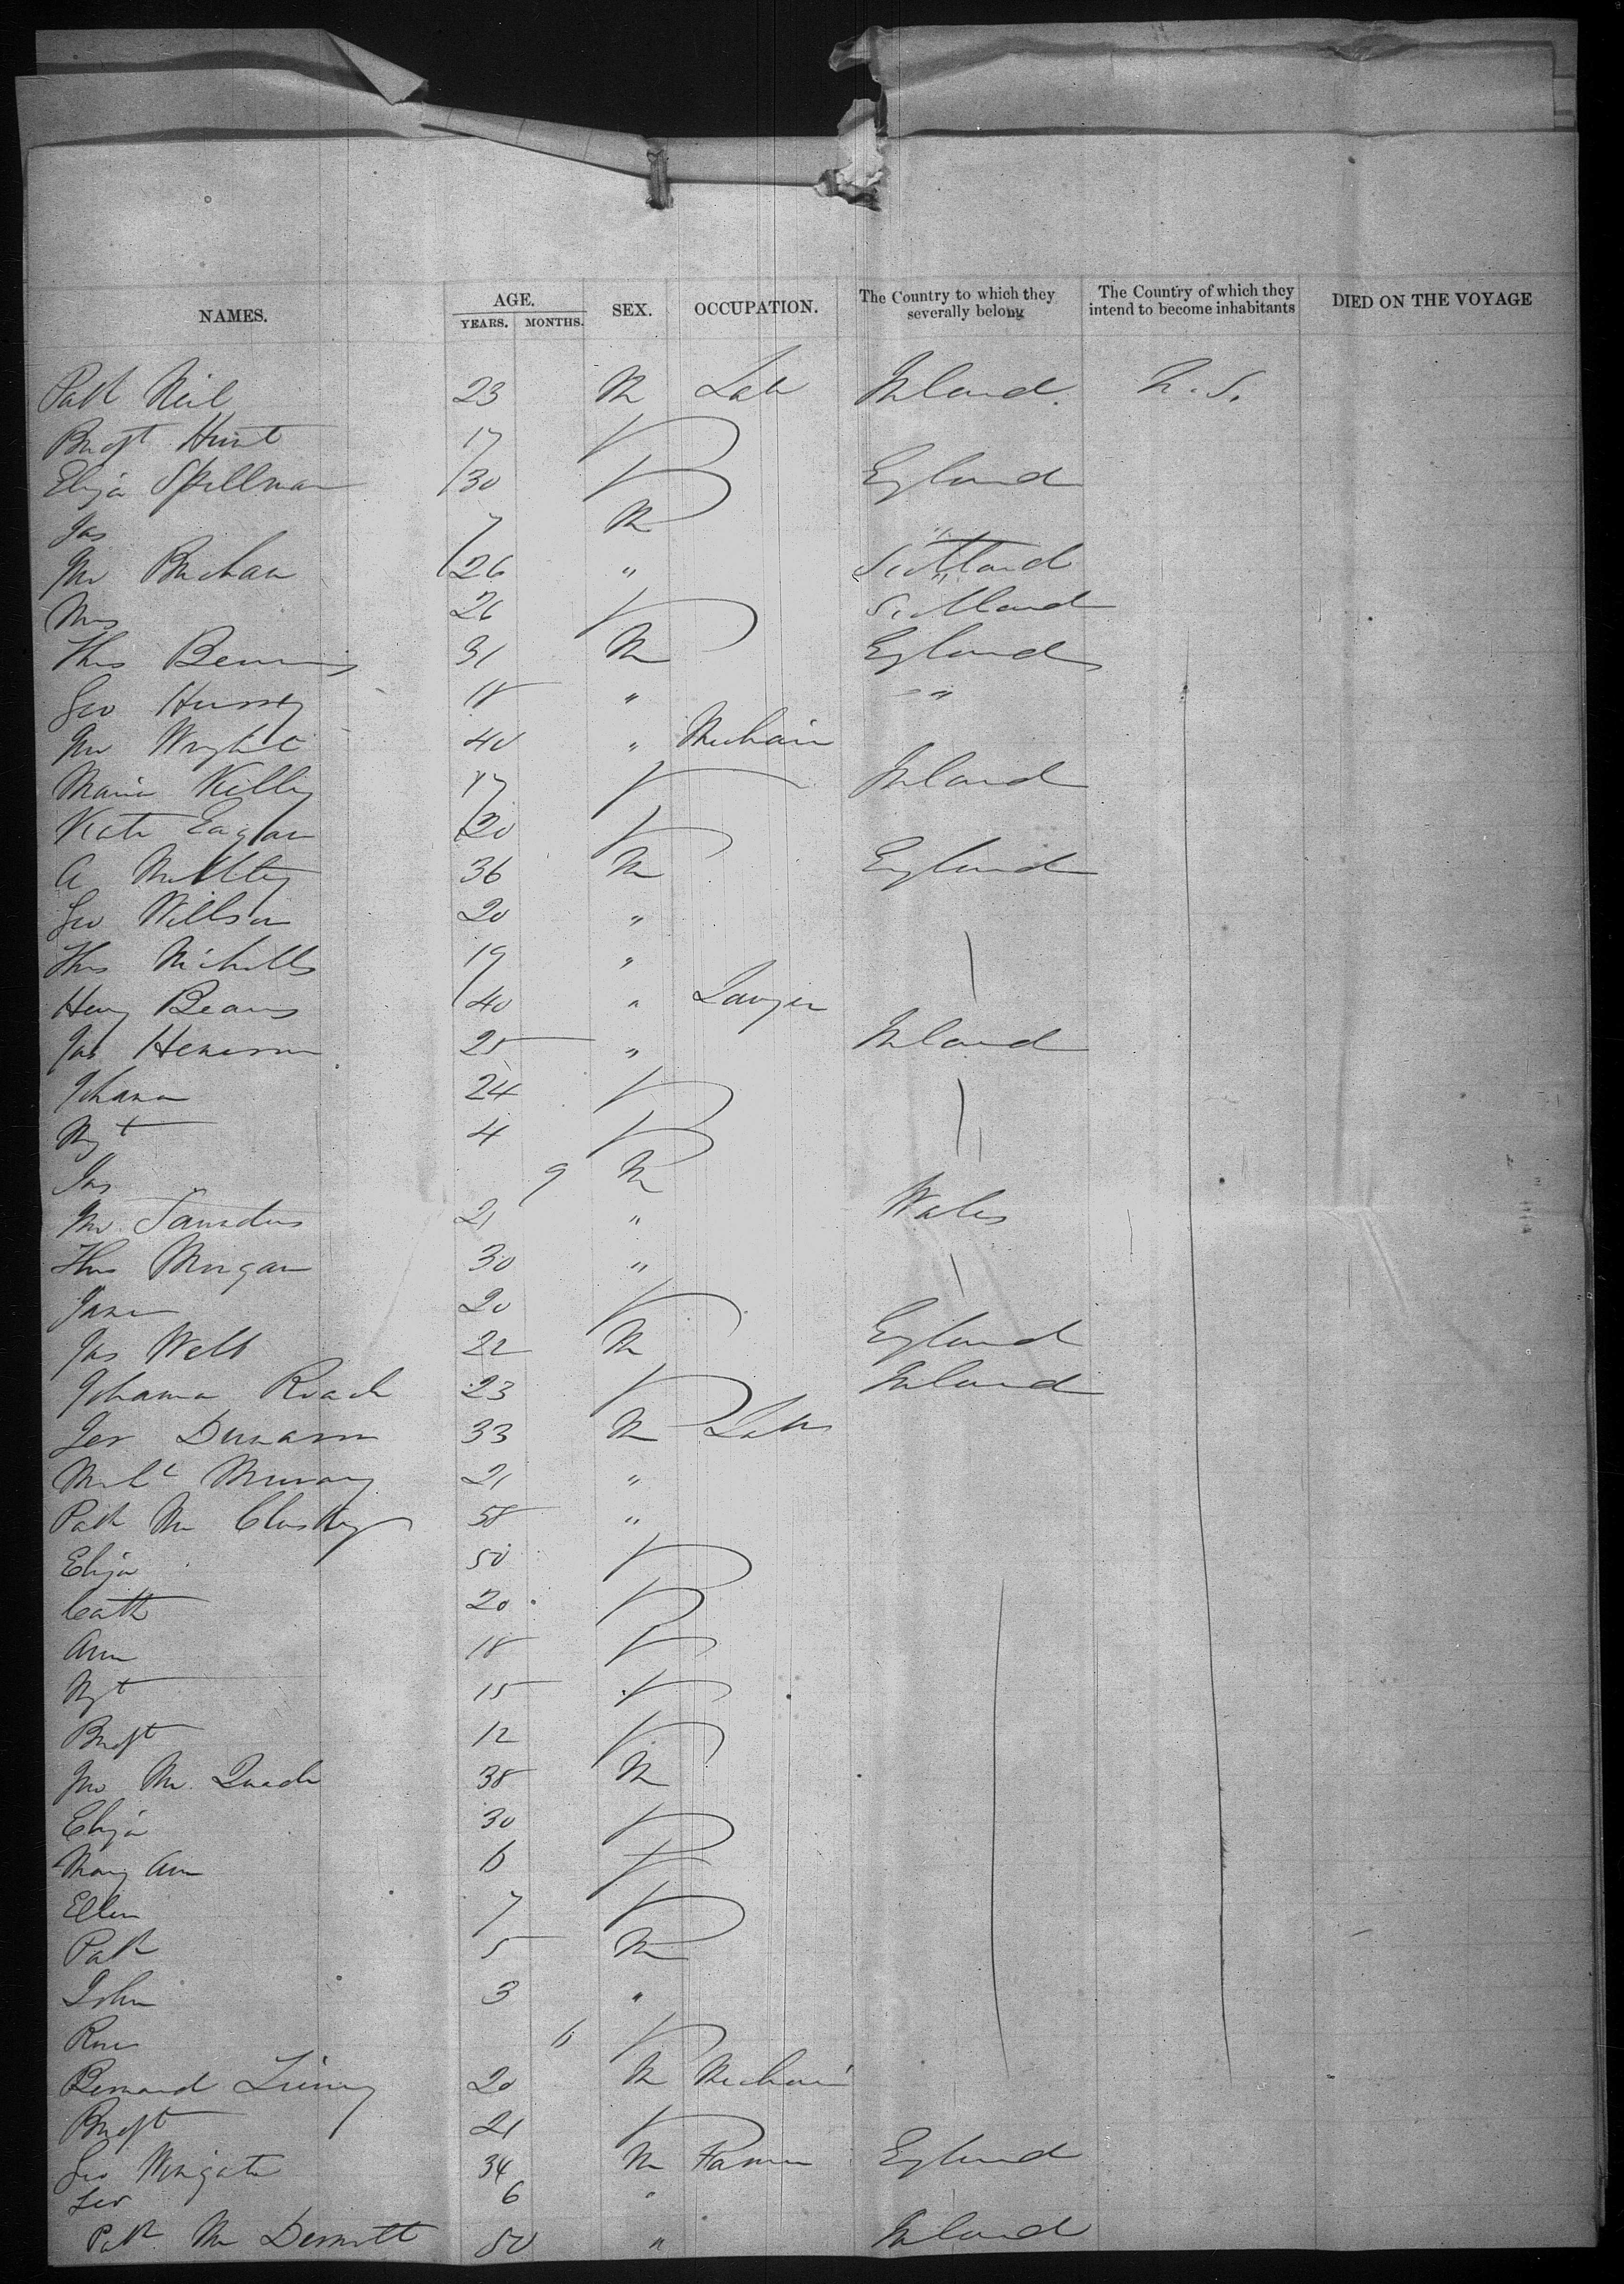 NAMES. AGE. YEARS. MONTHS. SEX. OCCUPATION. The Country to which they severally belong The Country of which they intend to become inhabitants DIED ON THE VOYAGE
Patk Neil 23 M Lab Ireland. U.S.
Bridgt Hunt 17 F
Eliza Spellman 30 F England
Jas 7 M "
Jno Buchan 26 " Scotland
Mrs 26 F Scotland
Thos 31 M England
Geo Hussey 18 " "
Jno Wright 40 " Mechanic
Maria Kelly 17 F Ireland
Kate Eagan 20 F
A 36 M England
Geo Willson 20 "
Thos Nicholls 19 "
Henry Beams 40 " Lawyer
Jas 25 " Ireland
Johana 24 F
Mgt 4 F
Jas 9 M
Jno Saunders 21 " Wales
Thos Morgan 30 "
Jane 20 F
Jas Webb 22 M England
Johanna Roach 23 F Ireland
Jer 33 M Labr
Michl Murray 21 "
Patk Mc Cluskey 58 "
Eliza 50 F
Cath 20 F
Ann 18 F
Mgt 15 F
Bridgt 12 F
Jno Mc Quade 38 M
Eliza 30 F
Mary Ann F
Ellen 7 F
Patk 5 M
John 3 "
Rose 6 F
Bernard 20 M Mechanic
Bridgt 21 F
Geo Wingate 34 M Farmer England
Geo 6 "
Patk Mc Dermott 50 " Ireland